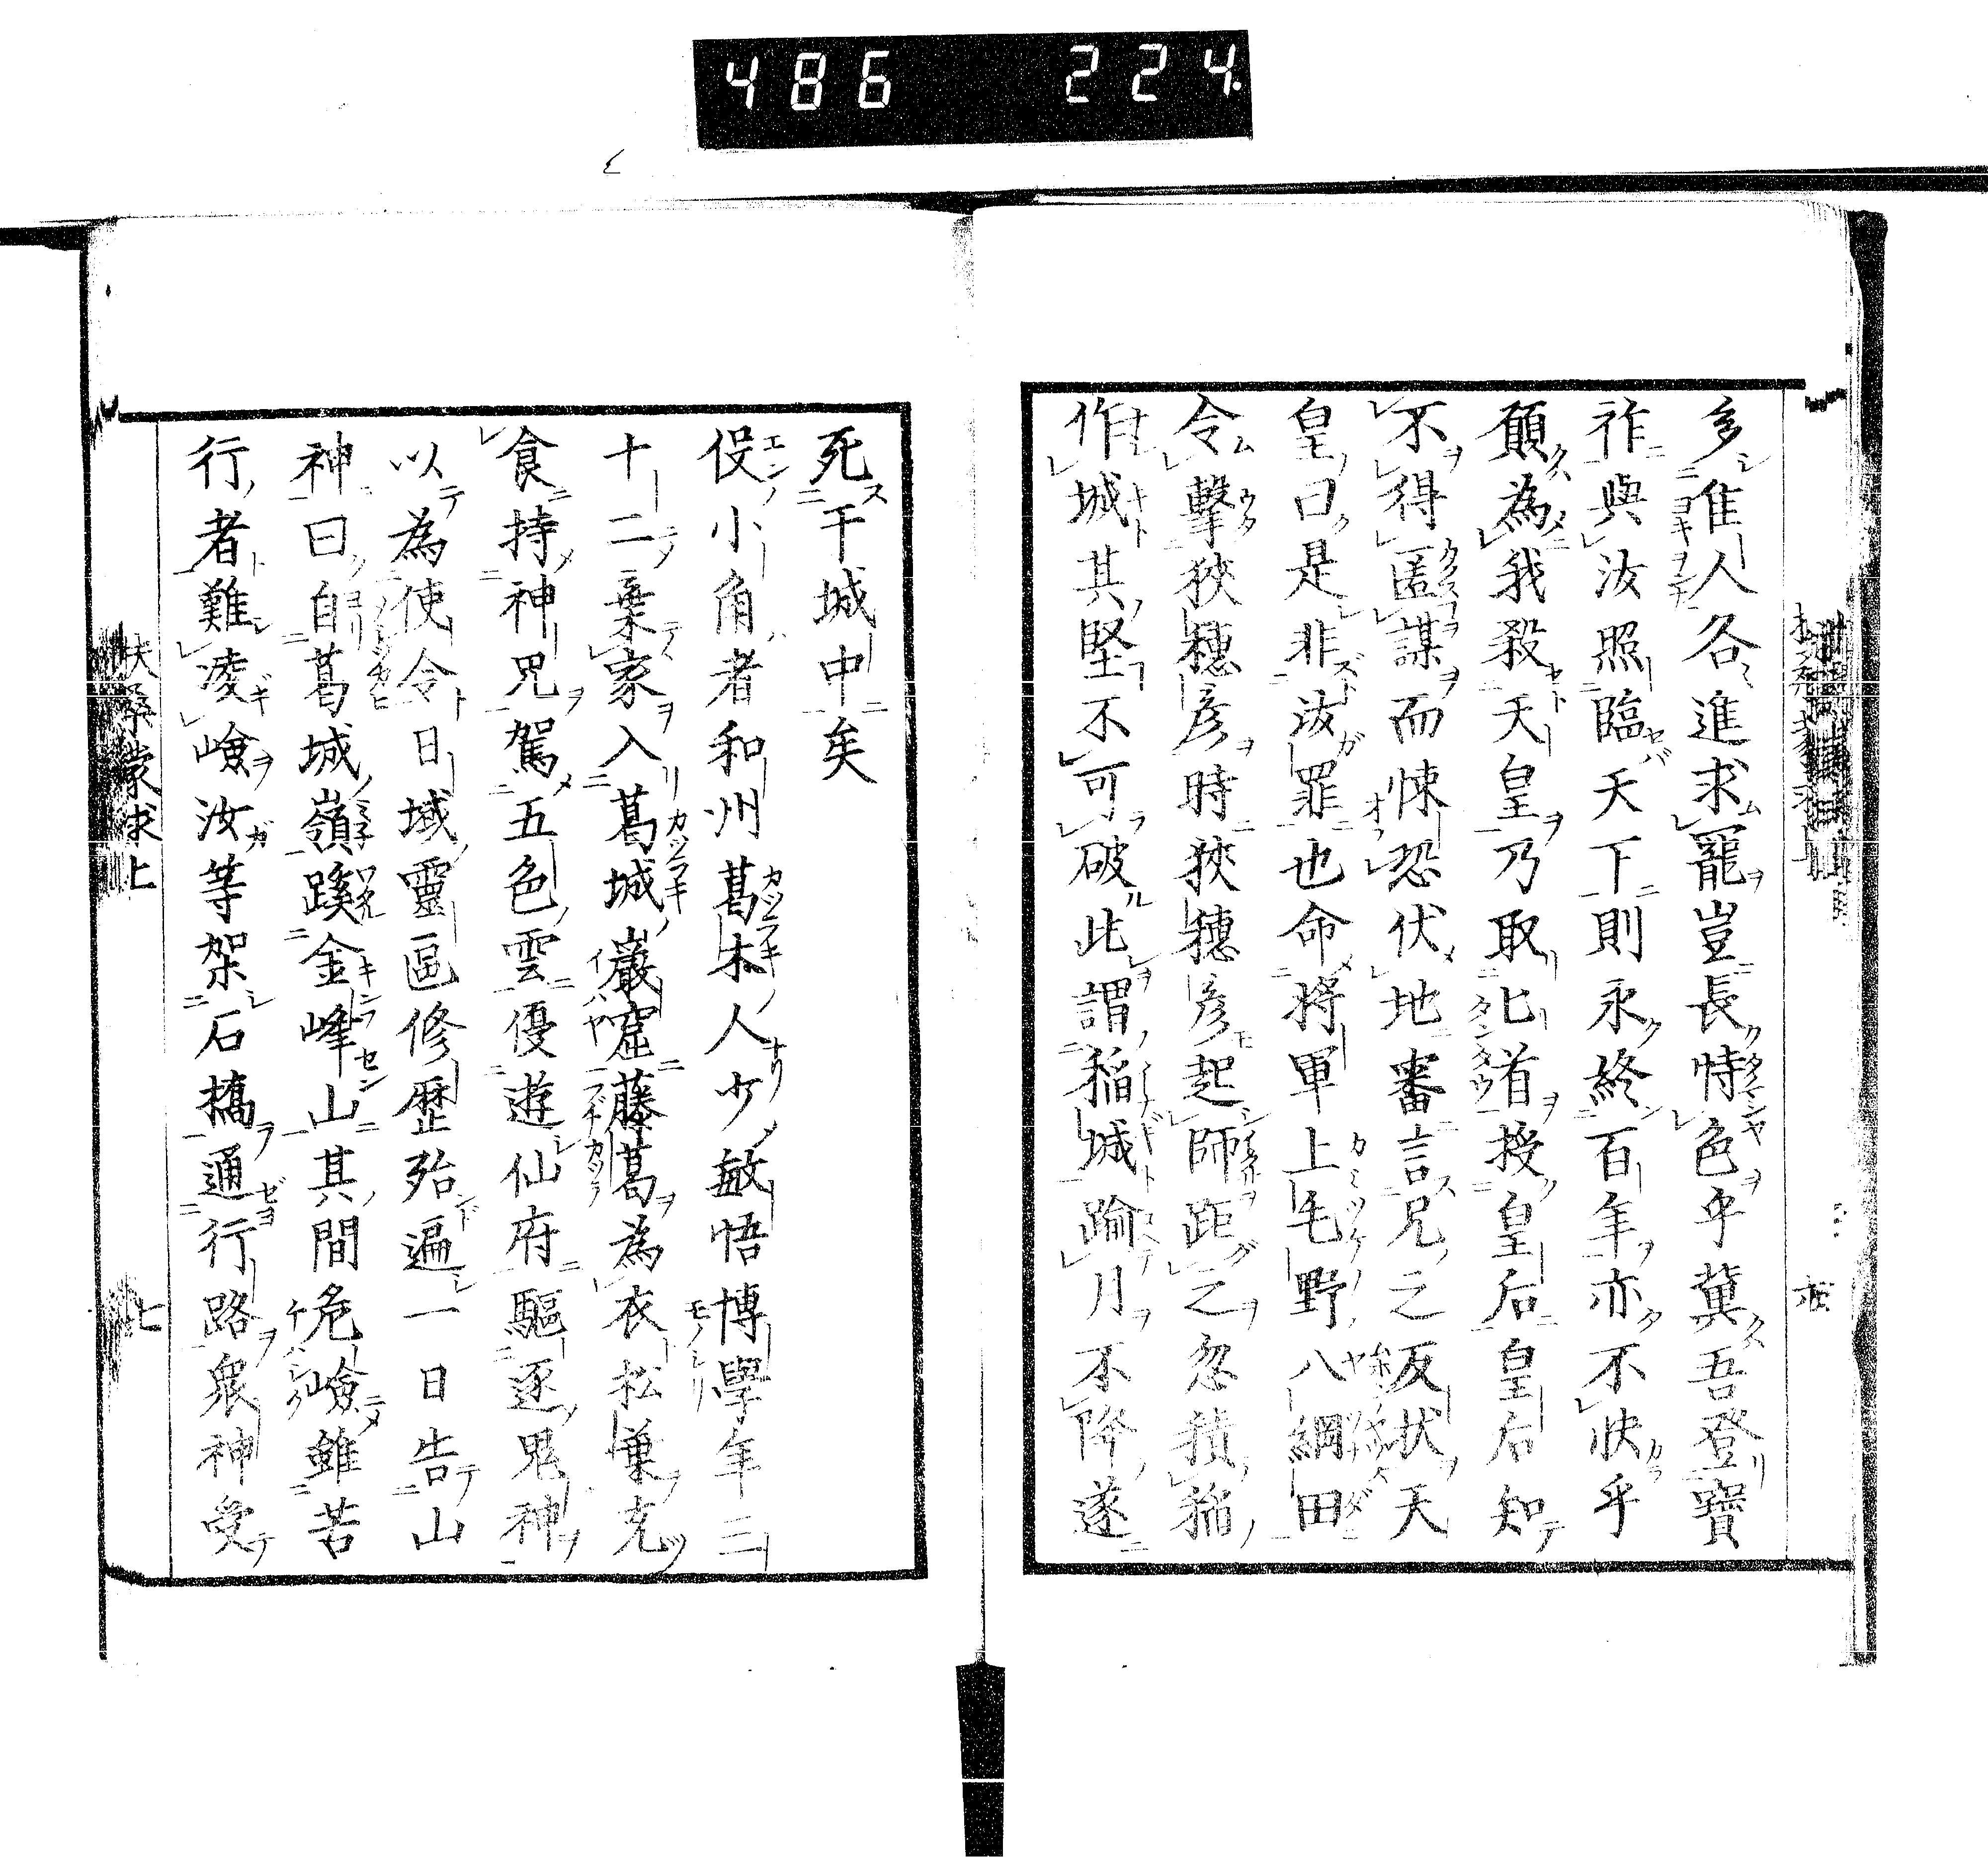 486 224.
多隹人各進求寵豈長恃色乎冀吾登寶
祚與汝照臨天下則永終百年亦不快乎
願為我殺天皇乃取匕首授皇后皇后知
不得匿謀而悚恐伏地審言兄之反状天
皇曰是非汝罪也命將軍上毛野八綱田
令擊狹穗彦時狹穗彦起師距之忽積稲
作城其堅不可破此謂稲城踰月不降遂
死于城中矣
役小角者和州葛木人少敏悟博學年三
十二棄家入葛城巖窟藤葛為衣松菓充
食持神咒駕五色雲優遊仙府驅逐鬼神
以為使令日域靈區修歴殆遍一日告山
神曰自葛城嶺蹊金峰山其間危嶮雖苦
行者難凌嶮汝等架石橋通行路衆神受
扶桑蒙求上
七